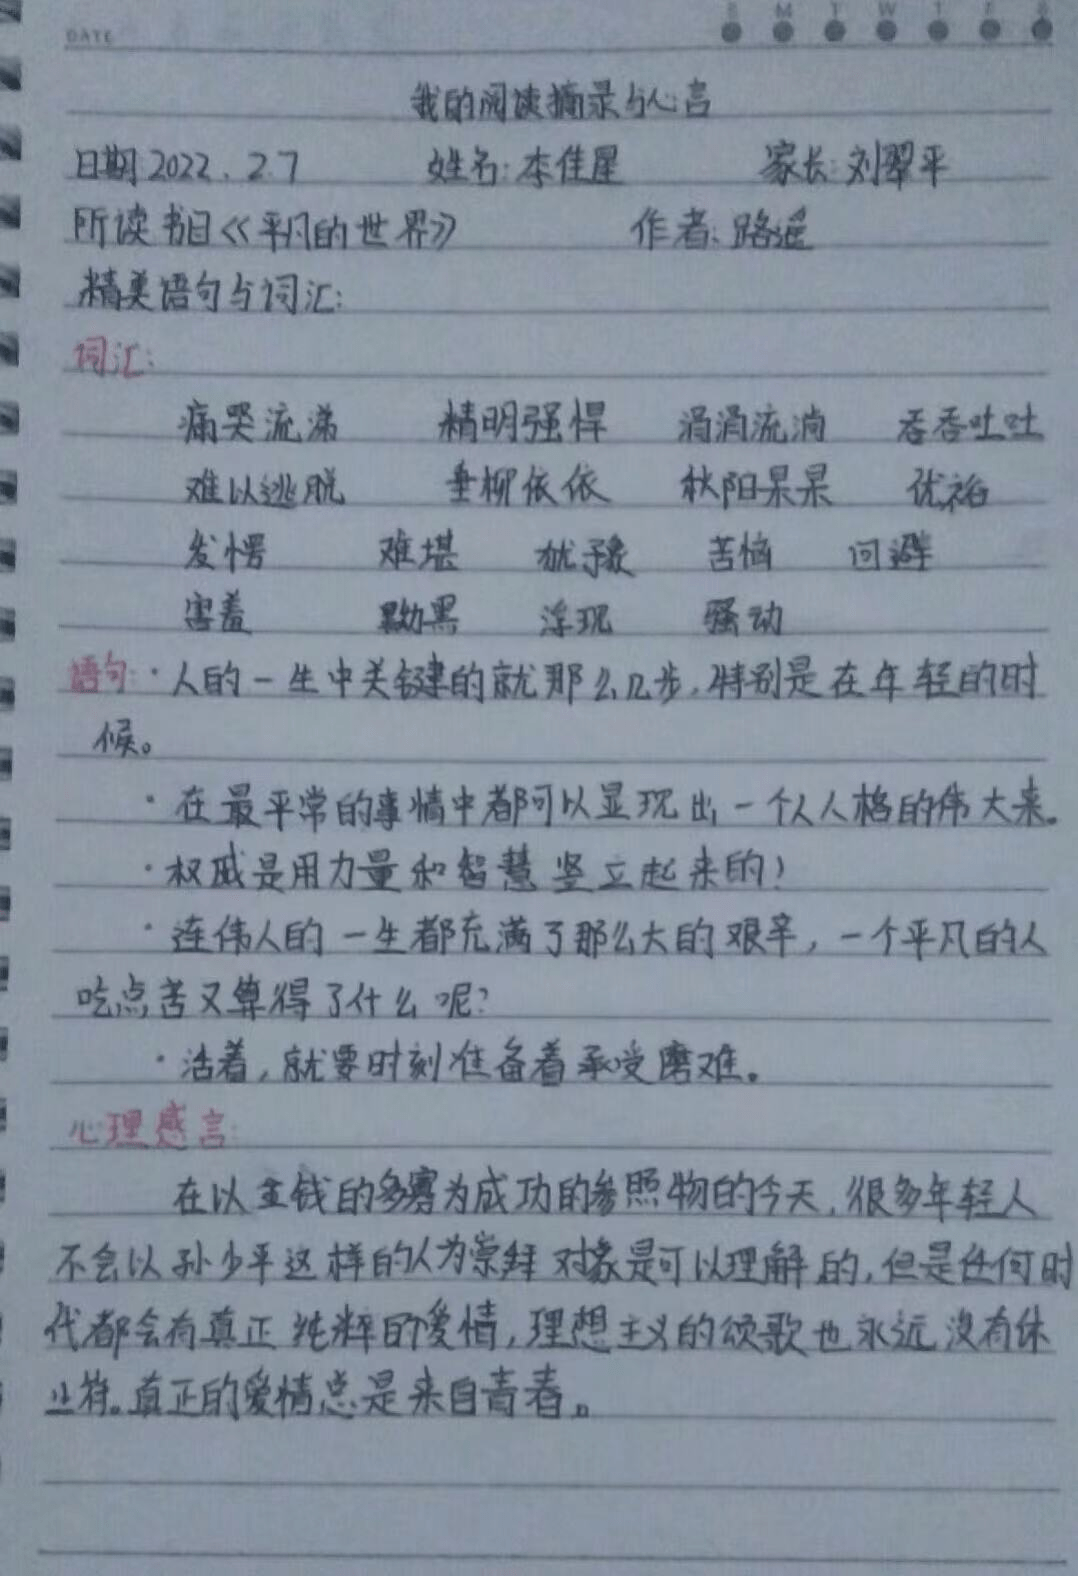 DATE
S M T W T F S
我的阅读摘录与心言
日期:2022.2.7 姓名:李佳星 家长:刘翠平
所读书目《平凡的世界》 作者:路遥
精美语句与词汇:
词汇:
痛哭流涕 精明强悍 涓涓流淌 吞吞吐吐
难以逃脱 垂柳依依 秋阳杲杲 优裕
发愣 难堪 犹豫 苦恼 回避
害羞 黝黑 浮现 骚动
语句:·人的一生中关键的就那么几步,特别是在年轻的时
候。
·在最平常的事情中都可以显现出一个人人格的伟大来。
·权威是用力量和智慧竖立起来的!
·连伟人的一生都充满了那么大的艰辛,一个平凡的人
吃点苦又算得了什么呢?
·活着,就要时刻准备着承受磨难。
心理感言:
在以金钱的多寡为成功的参照物的今天,很多年轻人
不会以孙少平这样的人为崇拜对象是可以理解的,但是任何时
代都会有真正纯粹的爱情,理想主义的颂歌也永远没有休
止符。真正的爱情总是来自青春。